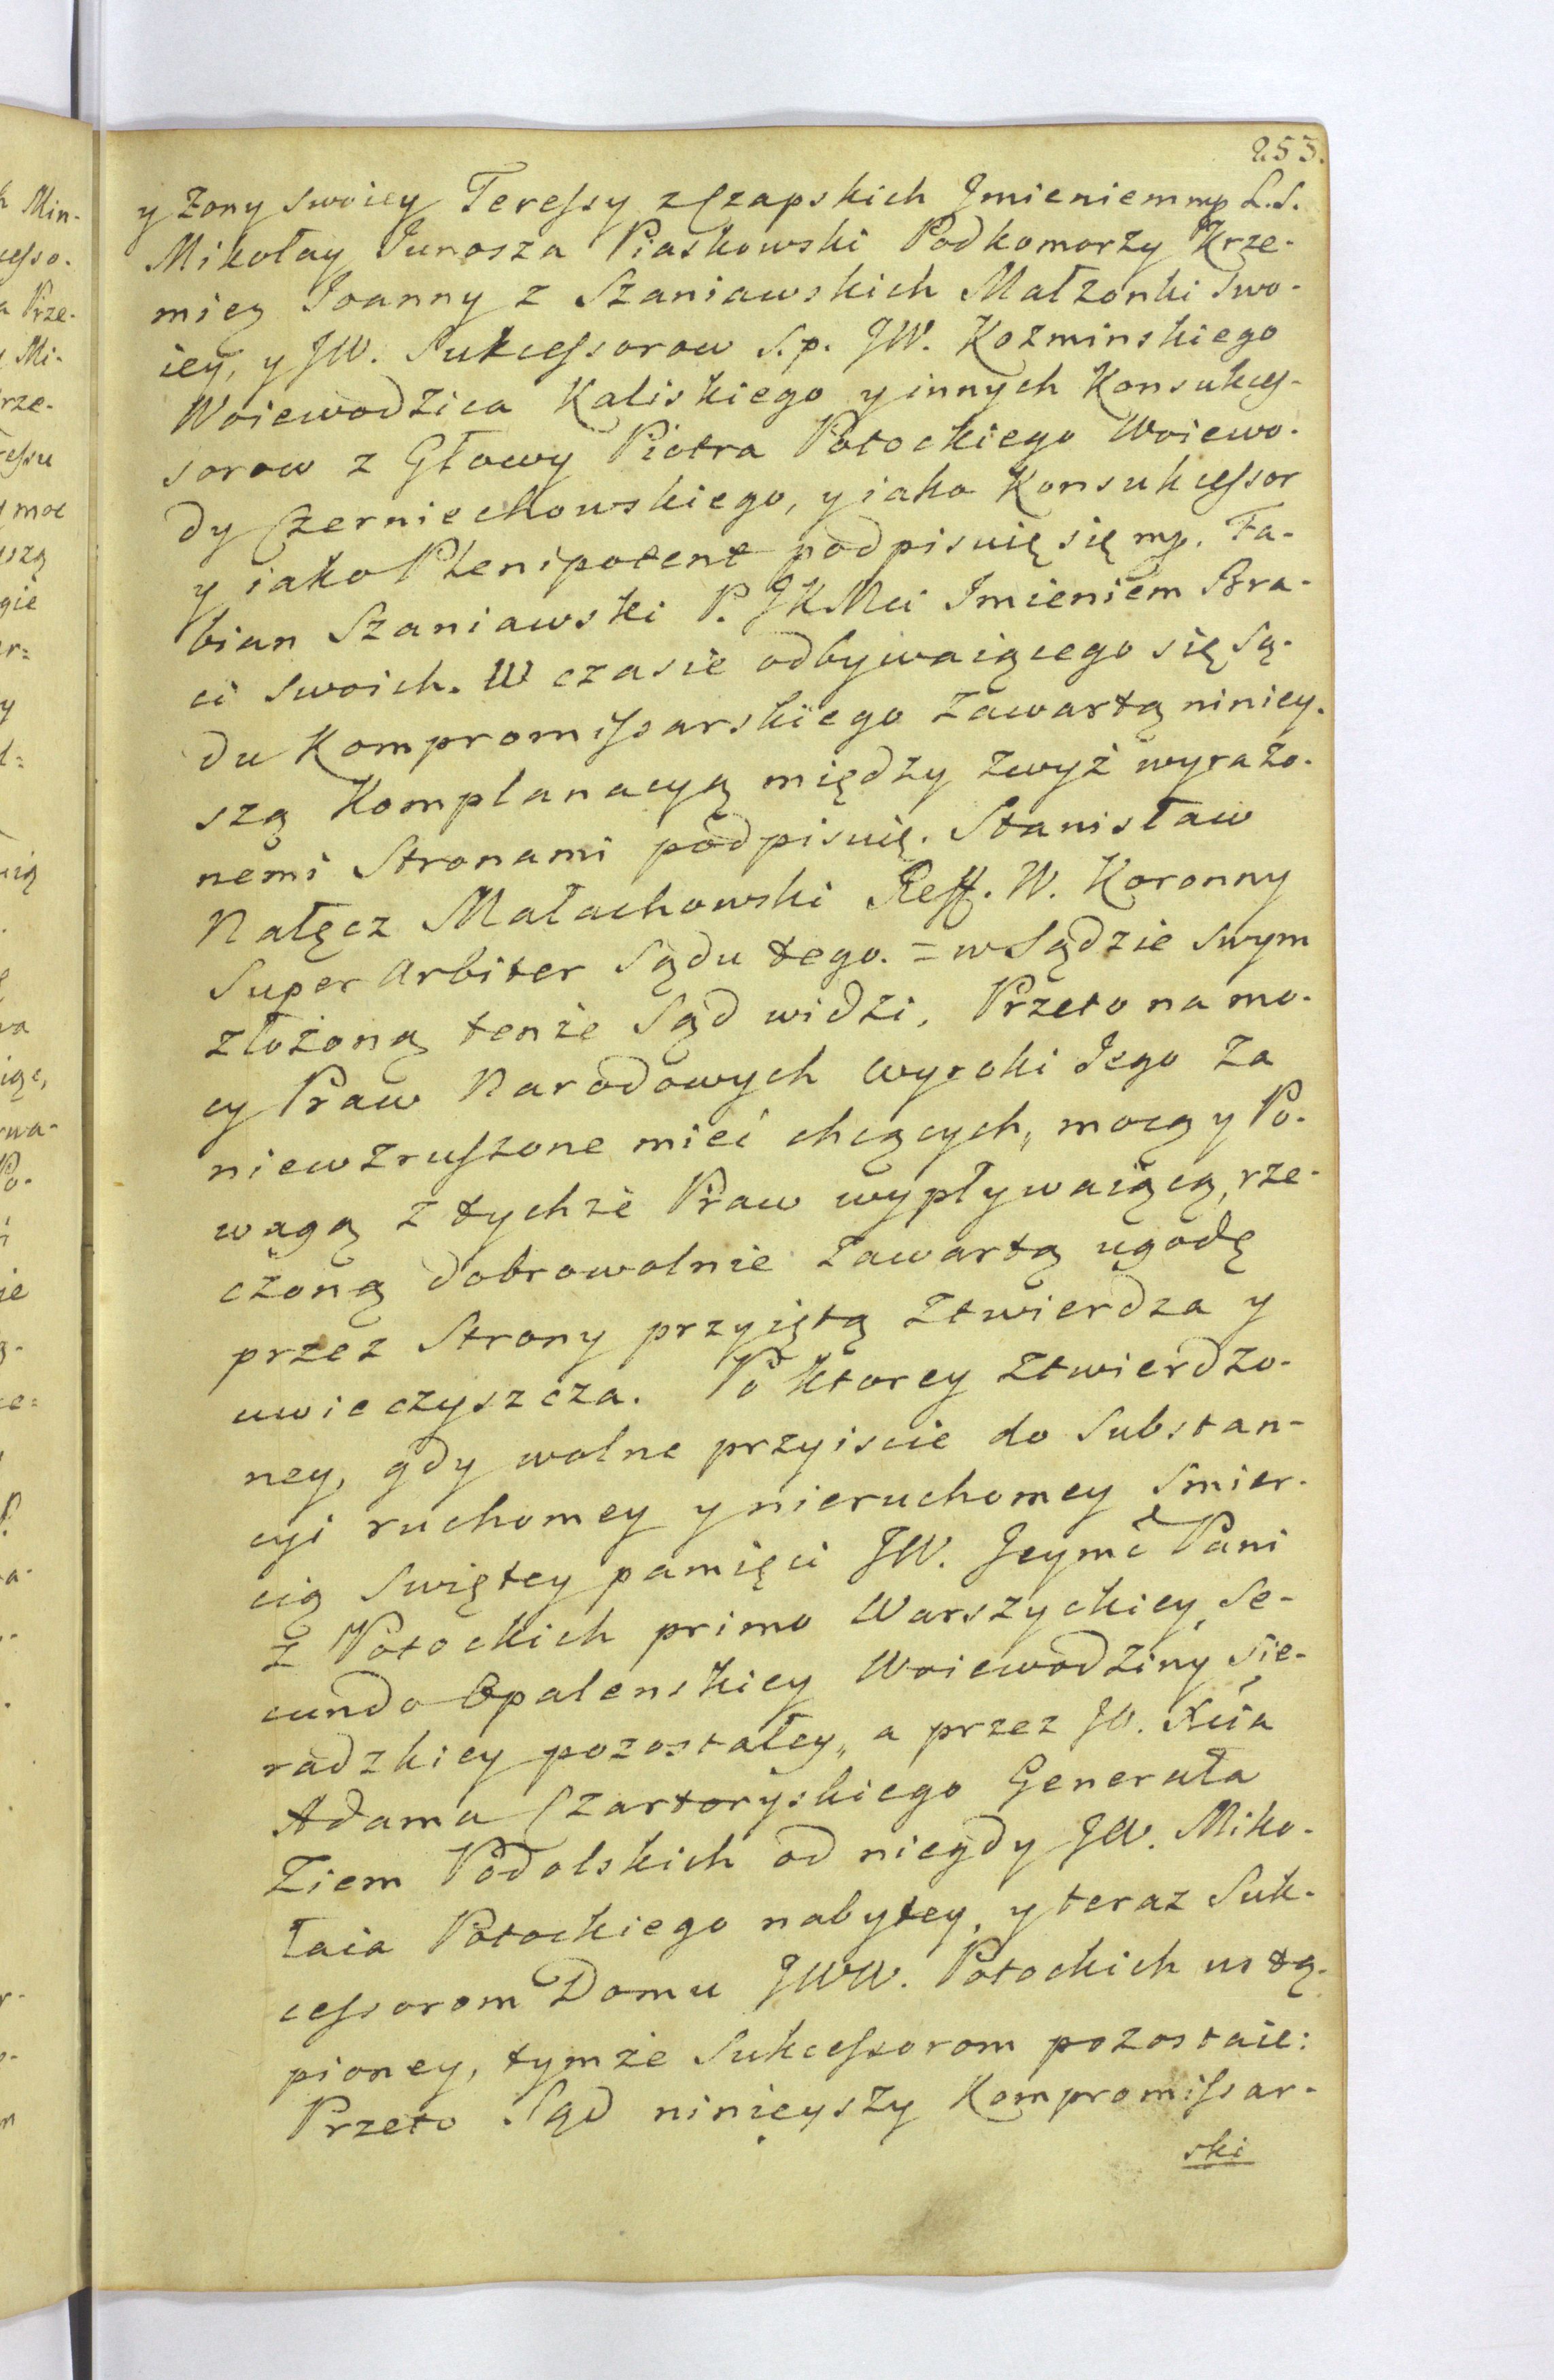 253.
y Zony swoiey Teressy z Czapskich Jmieniem mp L.S.
Mikołay Junosza Piaskowski Podkomorzy Krze-
mieg Joanny z Szaniawskich Małzonki swo-
iey, y JW. Sukcessorow S.p. JW. Kozminskiego
Woiewodzica Kaliskiego y innych Konsukces-
sorow z Głowy Piotra Potockiego Woiewo-
dy Czerniechowskiego, y iako Konsukcessor
y iako Plenipotent podpisuię się mp. Fa-
bian Szaniawski P. JKMci Imieniem Bra-
ci swoich. W czasie odbywaiącego się Są-
du Kompromissarskiego zawartą niniey-
szą Komplanacyą między zwyż wyrażo-
nemi Stronami podpisuię. Stanisław
Nałęcz Małachowski Reff. W. Koronny
Super Arbiter Sądu tego. = w Sądzie swym
złożoną tenże Sąd widzi, Przeto na mo-
cy Praw Narodowych wyroki Jego za
niewzruszone mieć chcących, mocą y Po-
wagą z tychże Praw wypływaiącą, rze-
czoną dobrowolnie zawartą ugodę
przez Strony przyiętą ztwierdza y
uwieczyszcza. Po ktorey ztwierdzo-
ney, gdy wolne przyiscie do Substan-
cyi ruchomey y nieruchomey Smier-
cią Swiętey pamięci JW. Jeymć Pani
z Potockich primo Warszyckiey, Se-
cundo Opalenskiey Woiewodziny Sie-
radzkiey pozostałey, a przez JO. Xcia
Adama Czartoryskiego Generała
Ziem Podolskich od niegdy JW. Miko-
łaia Potockiego nabytey, y teraz Suk-
cessorom Domu JWW. Potockich ustą-
pioney, tymże Sukcessorom pozostaie:
Przeto Sąd ninieyszy Kompromissar-
ski